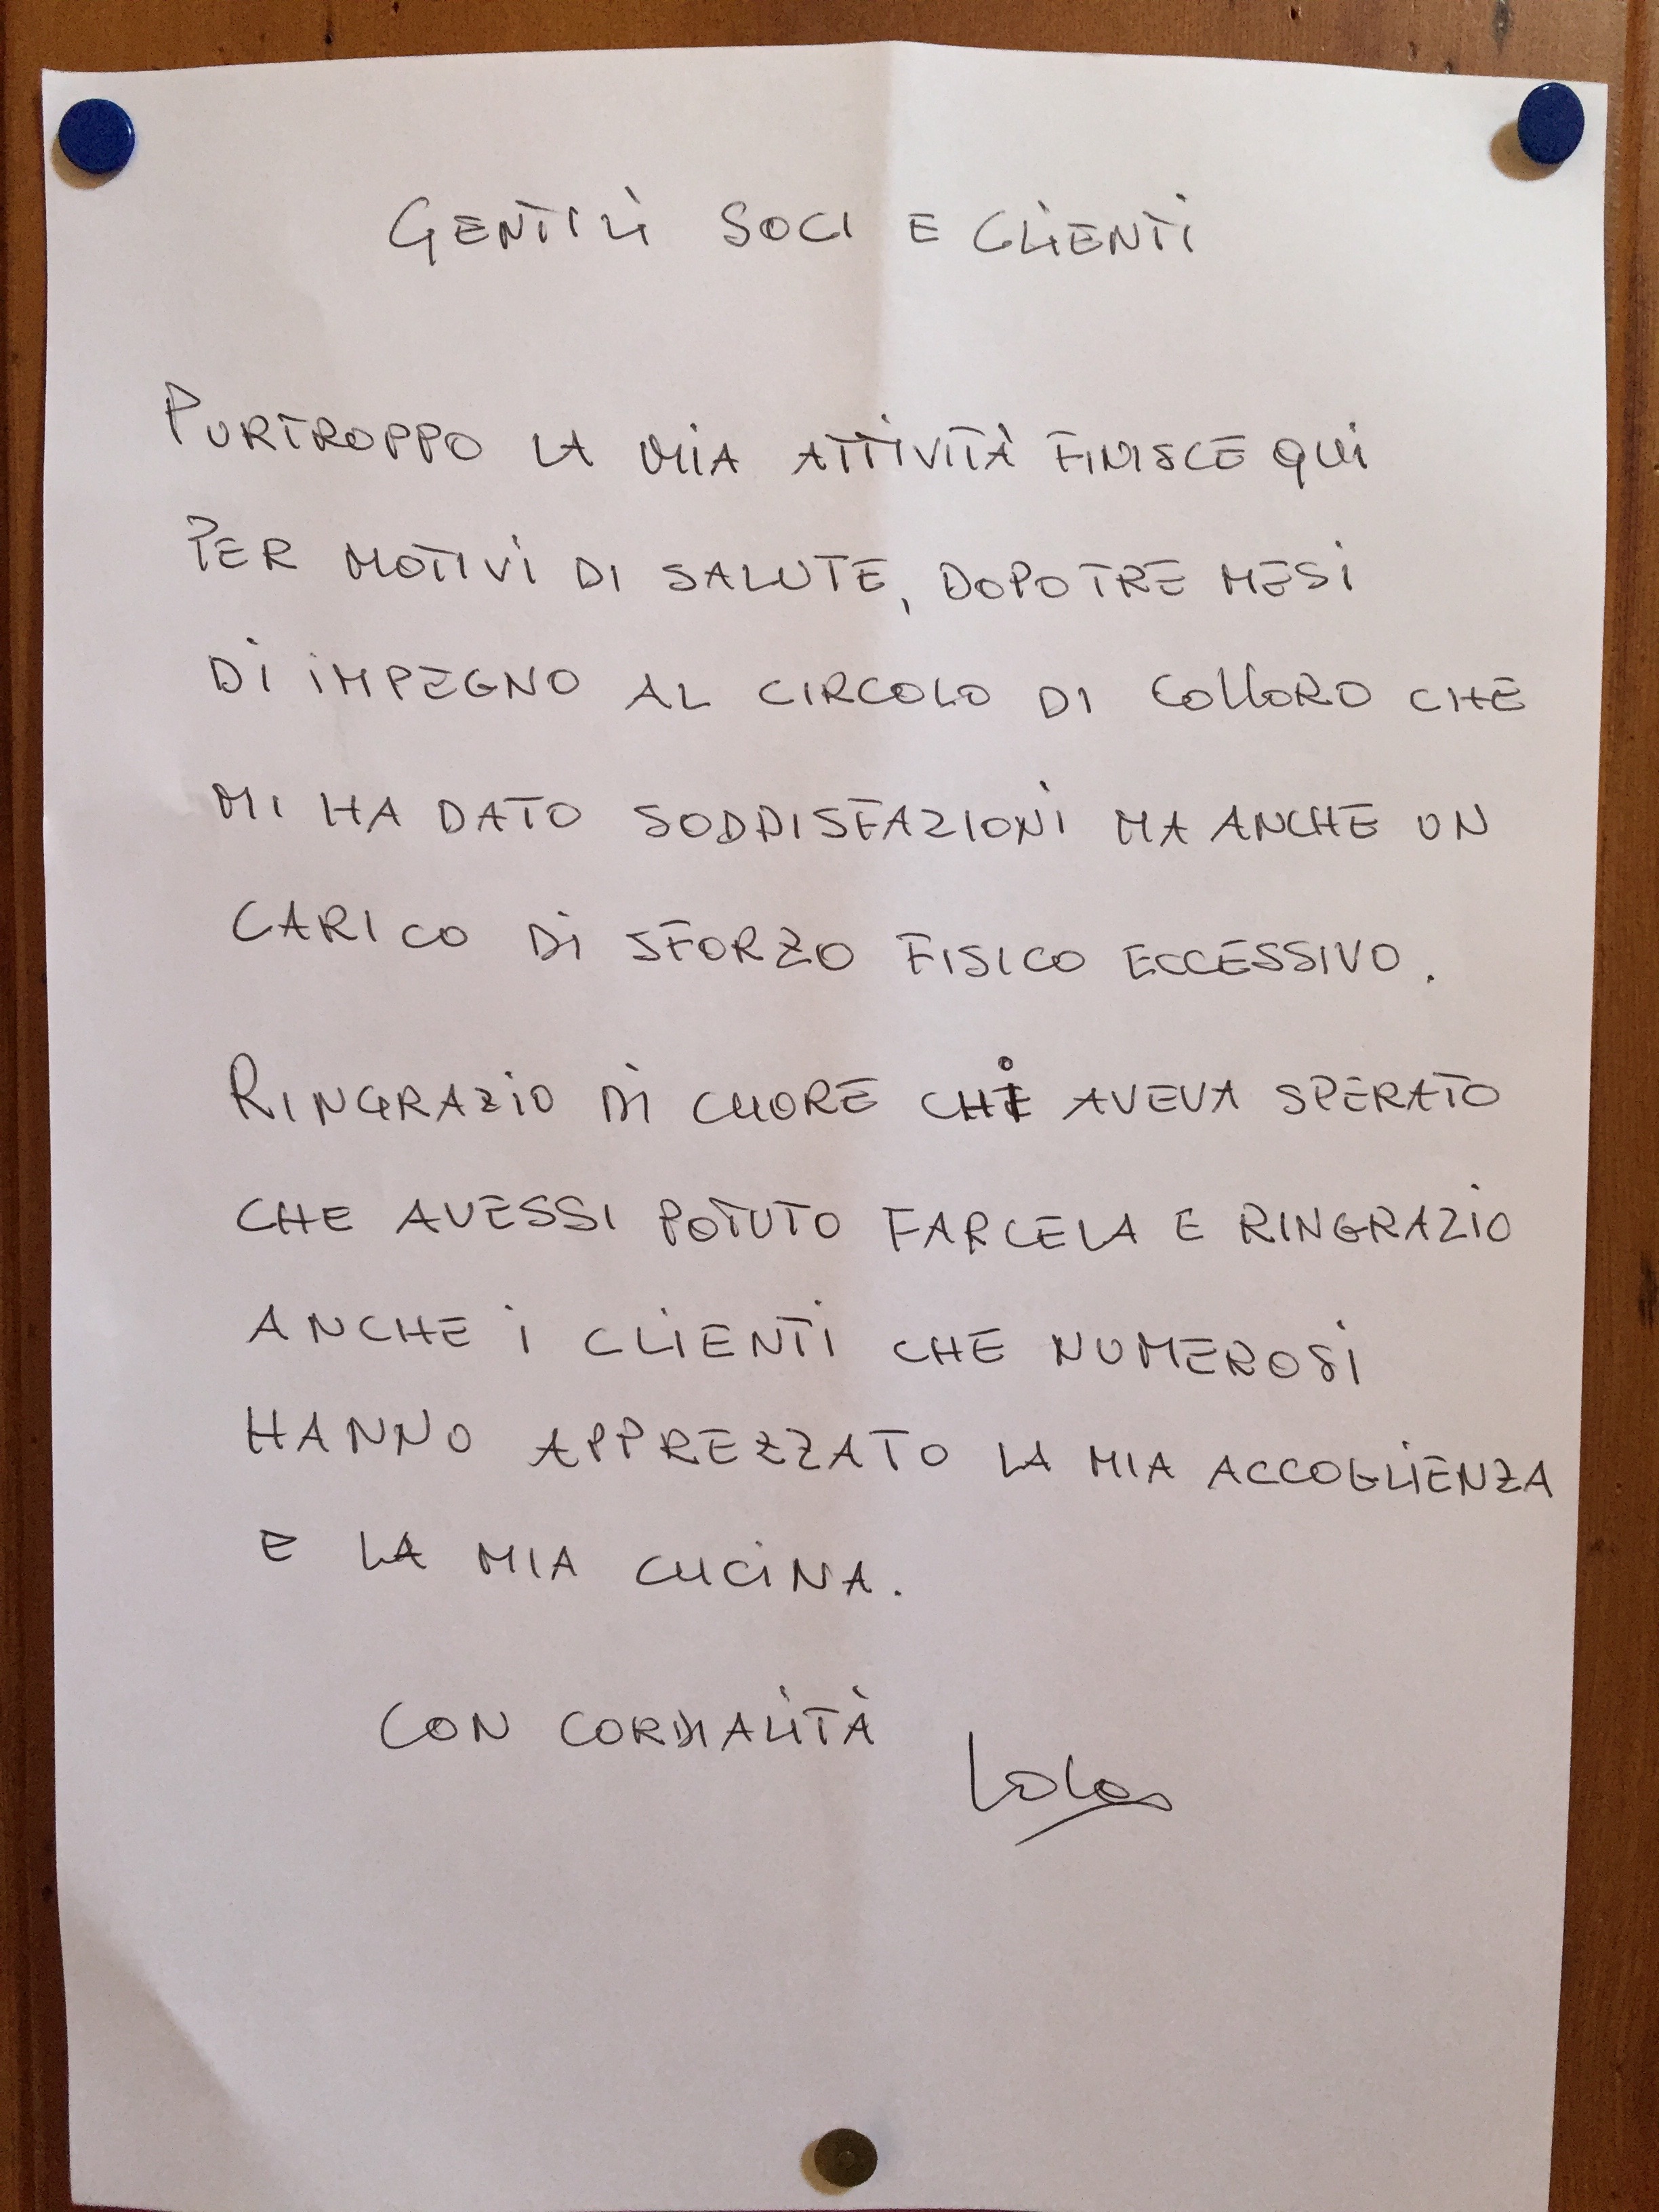 GENTILI SOCI E CLIENTI
PURTROPPO LA MIA ATTIVITÀ FINISCE QUI
PER MOTIVI DI SALUTE, DOPO TRE MESI
DI IMPEGNO AL CIRCOLO DI COLLORO CHE
MI HA DATO SODDISFAZIONI MA ANCHE UN
CARICO DI SFORZO FISICO ECCESSIVO.
RINGRAZIO DI CUORE CHI AVEVA SPERATO
CHE AVESSI POTUTO FARCELA E RINGRAZIO
ANCHE I CLIENTI CHE NUMEROSI
HANNO APPREZZATO LA MIA ACCOGLIENZA
E LA MIA CUCINA.
CON CORDIALITÀ
Lola